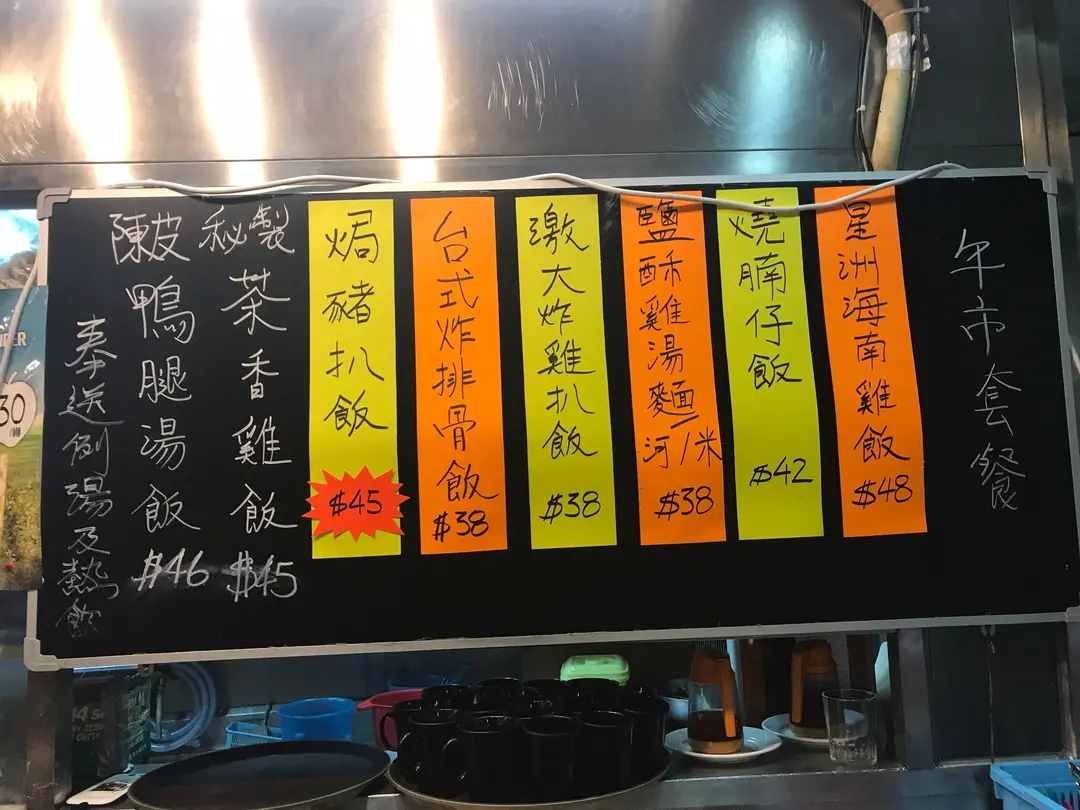 午市套餐
星洲海南雞飯
$48
燒腩仔飯
$42
鹽酥雞湯麵
河/米
$38
激大炸雞扒飯
$38
台式炸排骨飯
$38
焗豬扒飯
$45
秘製茶香雞飯
$45
陳皮鴨腿湯飯
$46
奉送例湯及熱飲
30
/樽